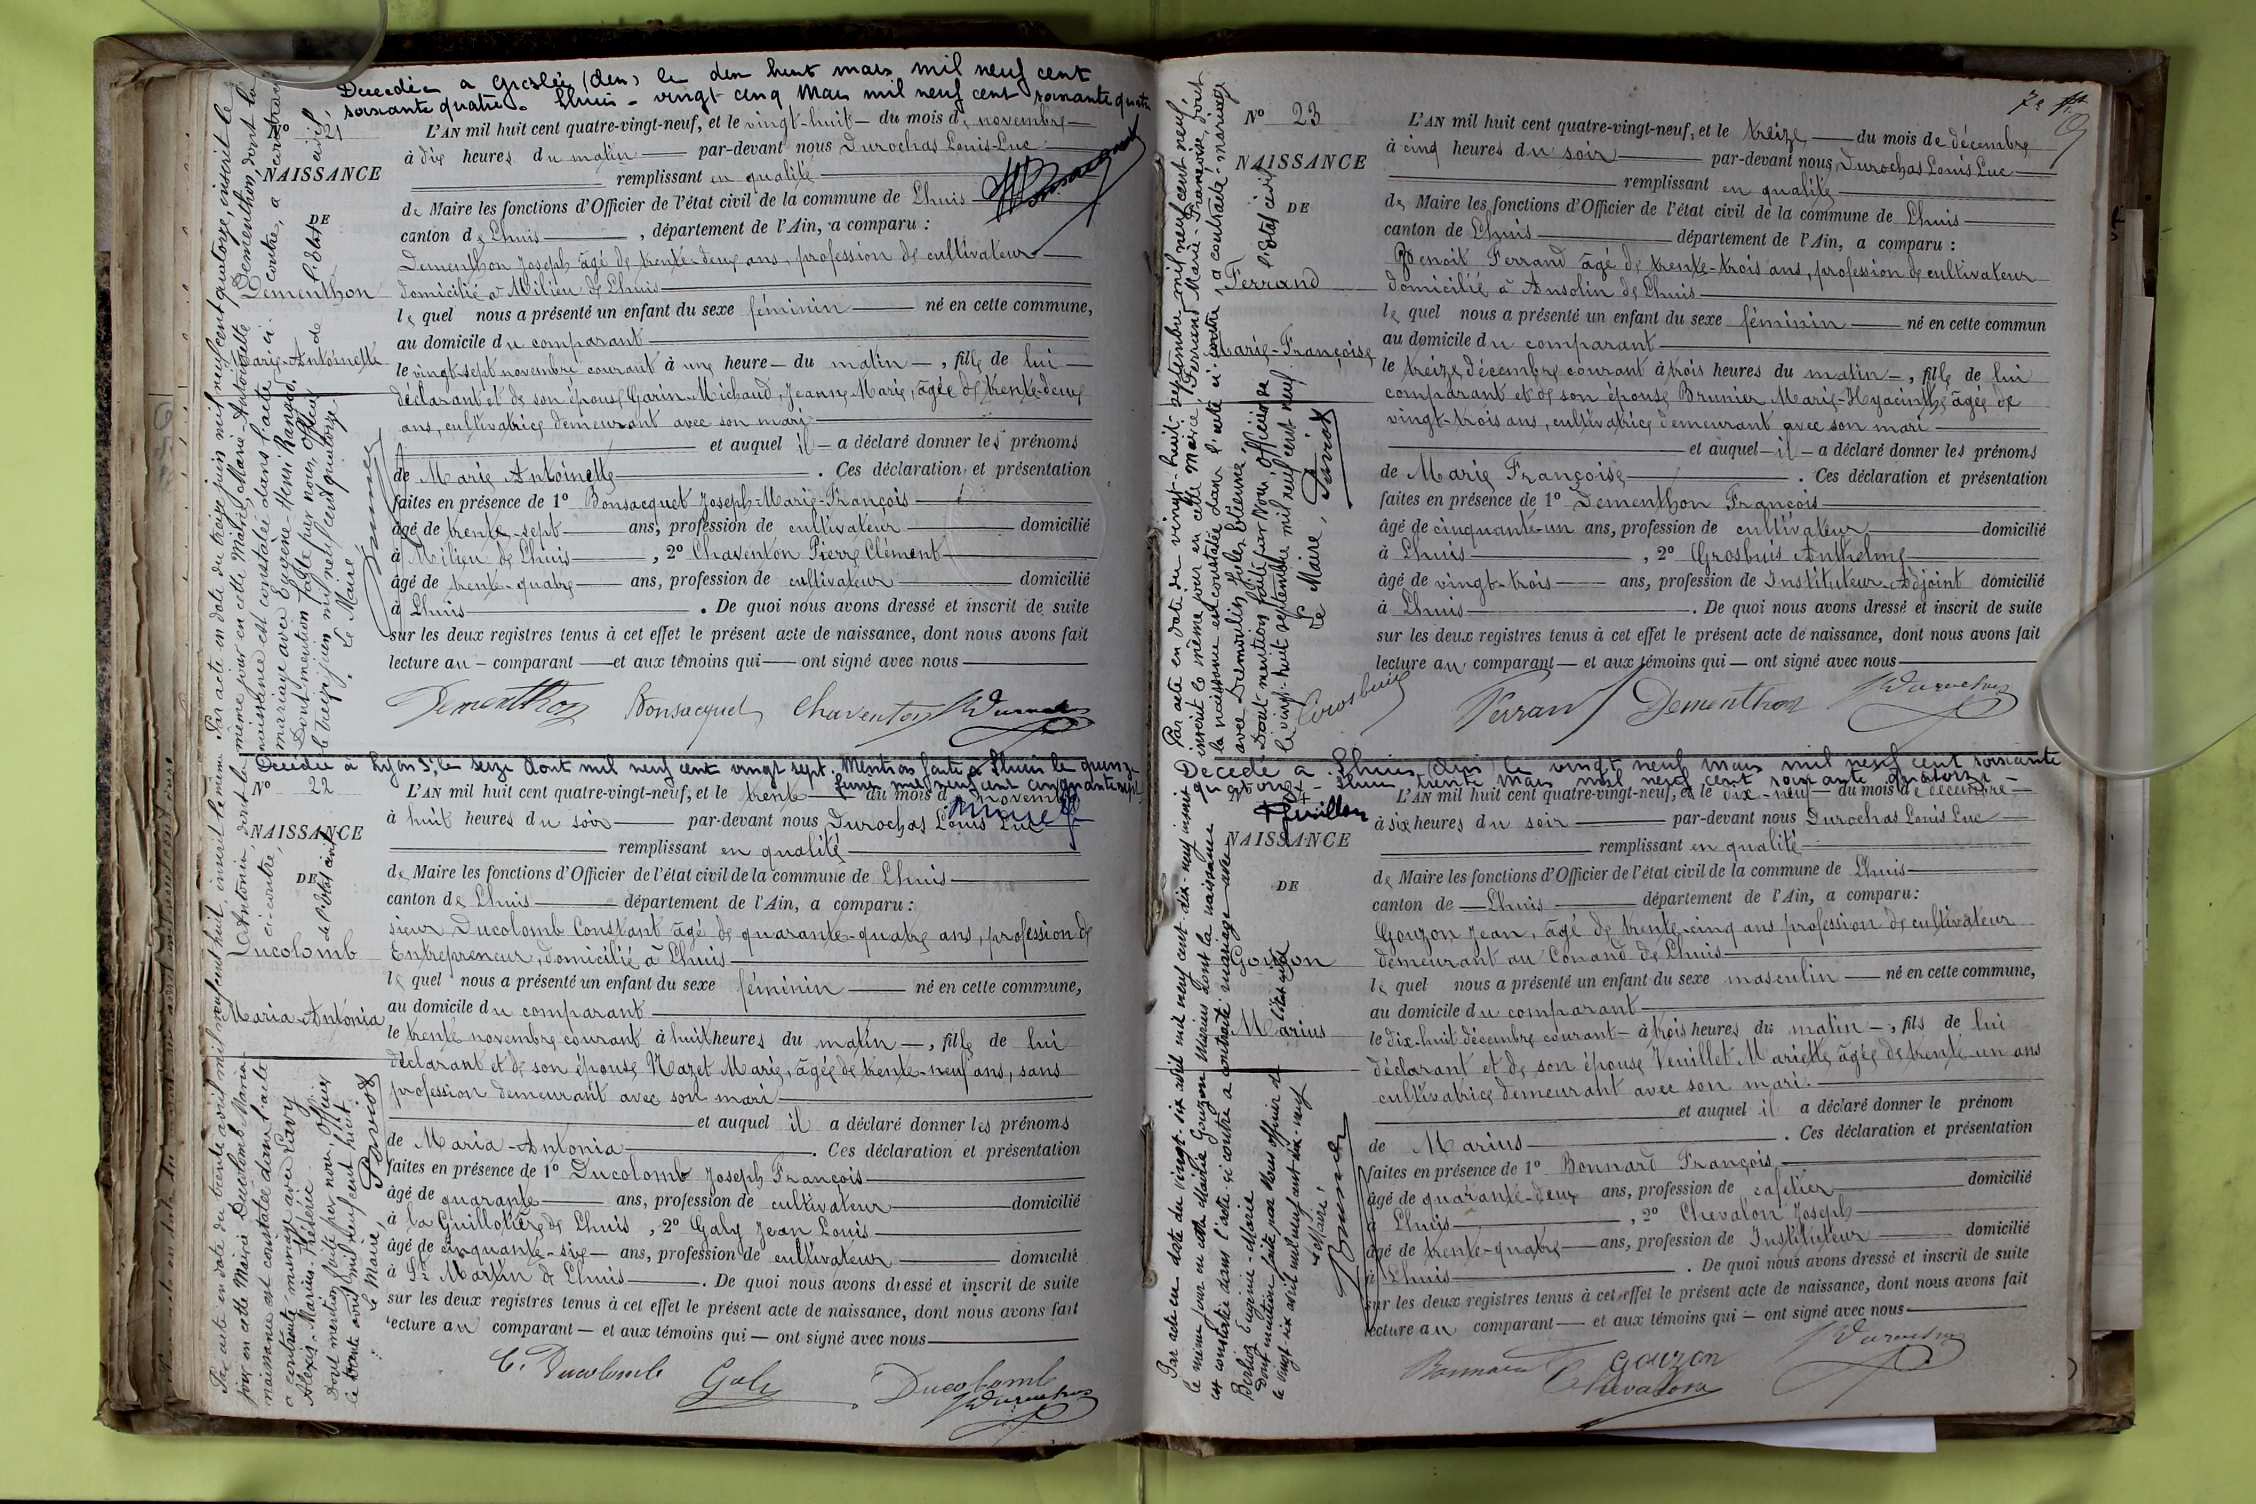 Décédée a Groslée (Ain) le dix huit mars mil neuf cent
soixante quatre. Lhuis - vingt cinq Mars mil neuf cent soixante quatre
Nº 21
NAISSANCE
DE
Dementhon
Marie-Antoinette
L'AN mil huit cent quatre-vingt-neuf, et le vingt-huit du mois de novembre
à dix heures du matin par-devant nous Durochas Louis-Luc
remplissant en qualité
de Maire les fonctions d'Officier de l'état civil de la commune de Lhuis
canton de Lhuis, département de l'Ain, a comparu :
Dementhon Joseph âgé de trente-deux ans, profession de cultivateur
domicilié à Milieu de Lhuis
lequel nous a présenté un enfant du sexe féminin né en cette commune,
au domicile du comparant
le vingt-sept novembre courant à une heure du matin, fille de lui
déclarant et de son épouse Garin-Michaud, Jeanne Marie, âgée de trente-deux
ans, cultivatrice demeurant avec son mari
et auquel il a déclaré donner les prénoms
de Marie Antoinette. Ces déclaration et présentation
faites en présence de 1º Bonsacquet Joseph-Marie-François
âgé de trente-sept ans, profession de cultivateur domicilié
à Milieu de Lhuis, 2º Chaventon Pierre Clément
âgé de trente-quatre ans, profession de cultivateur domicilié
à Lhuis. De quoi nous avons dressé et inscrit de suite
sur les deux registres tenus à cet effet le présent acte de naissance, dont nous avons fait
lecture au comparant et aux témoins qui ont signé avec nous
Dementhon Bonsacquet Chaventon Durochas
Par acte en date du treize juin mil neuf cent quatorze, inscrit le
même jour en cette Mairie, Marie-Antoinette Dementhon, dont la
naissance est constatée dans l'acte ci-contre, a contracté
mariage avec Eugène-Henri Rangod.
Dont mention faite par nous, Officier de l'état civil,
le treize juin mil neuf cent quatorze.
Le Maire
Décédée à Lyon 3e, le seize Août mil neuf cent vingt sept. Mention faite à Lhuis le quinze
mil neuf cent cinquante sept
Nº 22
NAISSANCE
DE
Ducolomb
Maria-Antonia
L'AN mil huit cent quatre-vingt-neuf, et le trente du mois de novembre
à huit heures du soir par-devant nous Durochas Louis Luc
remplissant en qualité
de Maire les fonctions d'Officier de l'état civil de la commune de Lhuis
canton de Lhuis département de l'Ain, a comparu :
sieur Ducolomb Constant âgé de quarante-quatre ans, profession de
Entrepreneur, domicilié à Lhuis
lequel nous a présenté un enfant du sexe féminin né en cette commune,
au domicile du comparant
le trente novembre courant à huit heures du matin, fille de lui
déclarant et de son épouse Mazet Marie, âgée de trente-neuf ans, sans
profession demeurant avec son mari
et auquel il a déclaré donner les prénoms
de Maria-Antonia. Ces déclaration et présentation
faites en présence de 1º Ducolomb Joseph François
âgé de quarante ans, profession de cultivateur domicilié
à la Guillotière de Lhuis, 2º Galy Jean Louis
âgé de cinquante-six ans, profession de cultivateur domicilié
à St Martin de Lhuis. De quoi nous avons dressé et inscrit de suite
sur les deux registres tenus à cet effet le présent acte de naissance, dont nous avons fait
lecture au comparant et aux témoins qui ont signé avec nous
C. Ducolomb Galy Ducolomb
Durochas
Par acte en date du trente avril mil neuf cent huit, inscrit le même
jour en cette Mairie Ducolomb Maria-Antonia, dont la
naissance est constatée dans l'acte ci-contre,
a contracté mariage avec Lavy
Alexis-Marius-Frédéric
Dont mention faite par nous, Officier de l'état civil
le trente avril mil neuf cent huit
Le Maire,
Paviot
7e
Nº 23
NAISSANCE
DE
Ferrand
Marie-Françoise
L'AN mil huit cent quatre-vingt-neuf, et le treize du mois de décembre
à cinq heures du soir par-devant nous Durochas Louis Luc
remplissant en qualité
de Maire les fonctions d'Officier de l'état civil de la commune de Lhuis
canton de Lhuis département de l'Ain, a comparu :
Benoit Ferrand âgé de trente-trois ans, profession de cultivateur
domicilié à Ansolin de Lhuis
lequel nous a présenté un enfant du sexe féminin né en cette commun
au domicile du comparant
le treize décembre courant à trois heures du matin, fille de lui
comparant et de son épouse Brunier Marie-Hyacinthe âgée de
vingt-trois ans, cultivatrice demeurant avec son mari
et auquel il a déclaré donner les prénoms
de Marie Françoise. Ces déclaration et présentation
faites en présence de 1º Dementhon François
âgé de cinquante-un ans, profession de cultivateur domicilié
à Lhuis, 2º Grosbuis Anthelme
âgé de vingt-trois ans, profession de Instituteur-Adjoint domicilié
à Lhuis. De quoi nous avons dressé et inscrit de suite
sur les deux registres tenus à cet effet le présent acte de naissance, dont nous avons fait
lecture au comparant et aux témoins qui ont signé avec nous
Grosbuis Ferrand Dementhon Durochas
Par acte en date du vingt-huit septembre mil neuf cent neuf,
inscrit le même jour en cette Mairie Ferrand Marie-Françoise, dont
la naissance est constatée dans l'acte ci-contre, a contracté mariage
avec Demoulin Jules Etienne
Dont mention faite par nous, Officier de l'état civil
le vingt-huit septembre mil neuf cent neuf
Le Maire,
Paviot
Décédé a Lhuis (Ain) le vingt neuf mars mil neuf cent soixante
quatorze - Lhuis trente Mars mil neuf cent soixante quatorze -
Nº 24
NAISSANCE
DE
Gouzon
Marius
L'AN mil huit cent quatre-vingt-neuf, et le dix-neuf du mois de décembre
à six heures du soir par-devant nous Durochas Louis Luc
remplissant en qualité
de Maire les fonctions d'Officier de l'état civil de la commune de Lhuis
canton de Lhuis département de l'Ain, a comparu:
Gouzon Jean, âgé de trente-cinq ans profession de cultivateur
demeurant au Conand de Lhuis
lequel nous a présenté un enfant du sexe masculin né en cette commune,
au domicile du comparant
le dix-huit décembre courant à trois heures du matin, fils de lui
déclarant et de son épouse Veuillet Mariette âgée de trente-un ans
cultivatrice demeurant avec son mari.
et auquel il a déclaré donner le prénom
de Marius. Ces déclaration et présentation
faites en présence de 1º Bonnard François
âgé de quarante-deux ans, profession de cafetier domicilié
à Lhuis, 2º Chevalon Joseph
âgé de trente-quatre ans, profession de Instituteur domicilié
à Lhuis. De quoi nous avons dressé et inscrit de suite
sur les deux registres tenus à cet effet le présent acte de naissance, dont nous avons fait
lecture au comparant et aux témoins qui ont signé avec nous
Bonnard Gouzon Durochas
Chevalon
Par acte en date du vingt-six avril mil neuf cent dix-neuf inscrit
le même jour en cette Mairie Gouzon Marius dont la naissance
est constatée dans l'acte ci-contre a contracté mariage avec
Berlioz Eugénie-Marie
Dont mention faite par Nous officier de l'état civil
le vingt six avril mil neuf cent dix-neuf
Le Maire,